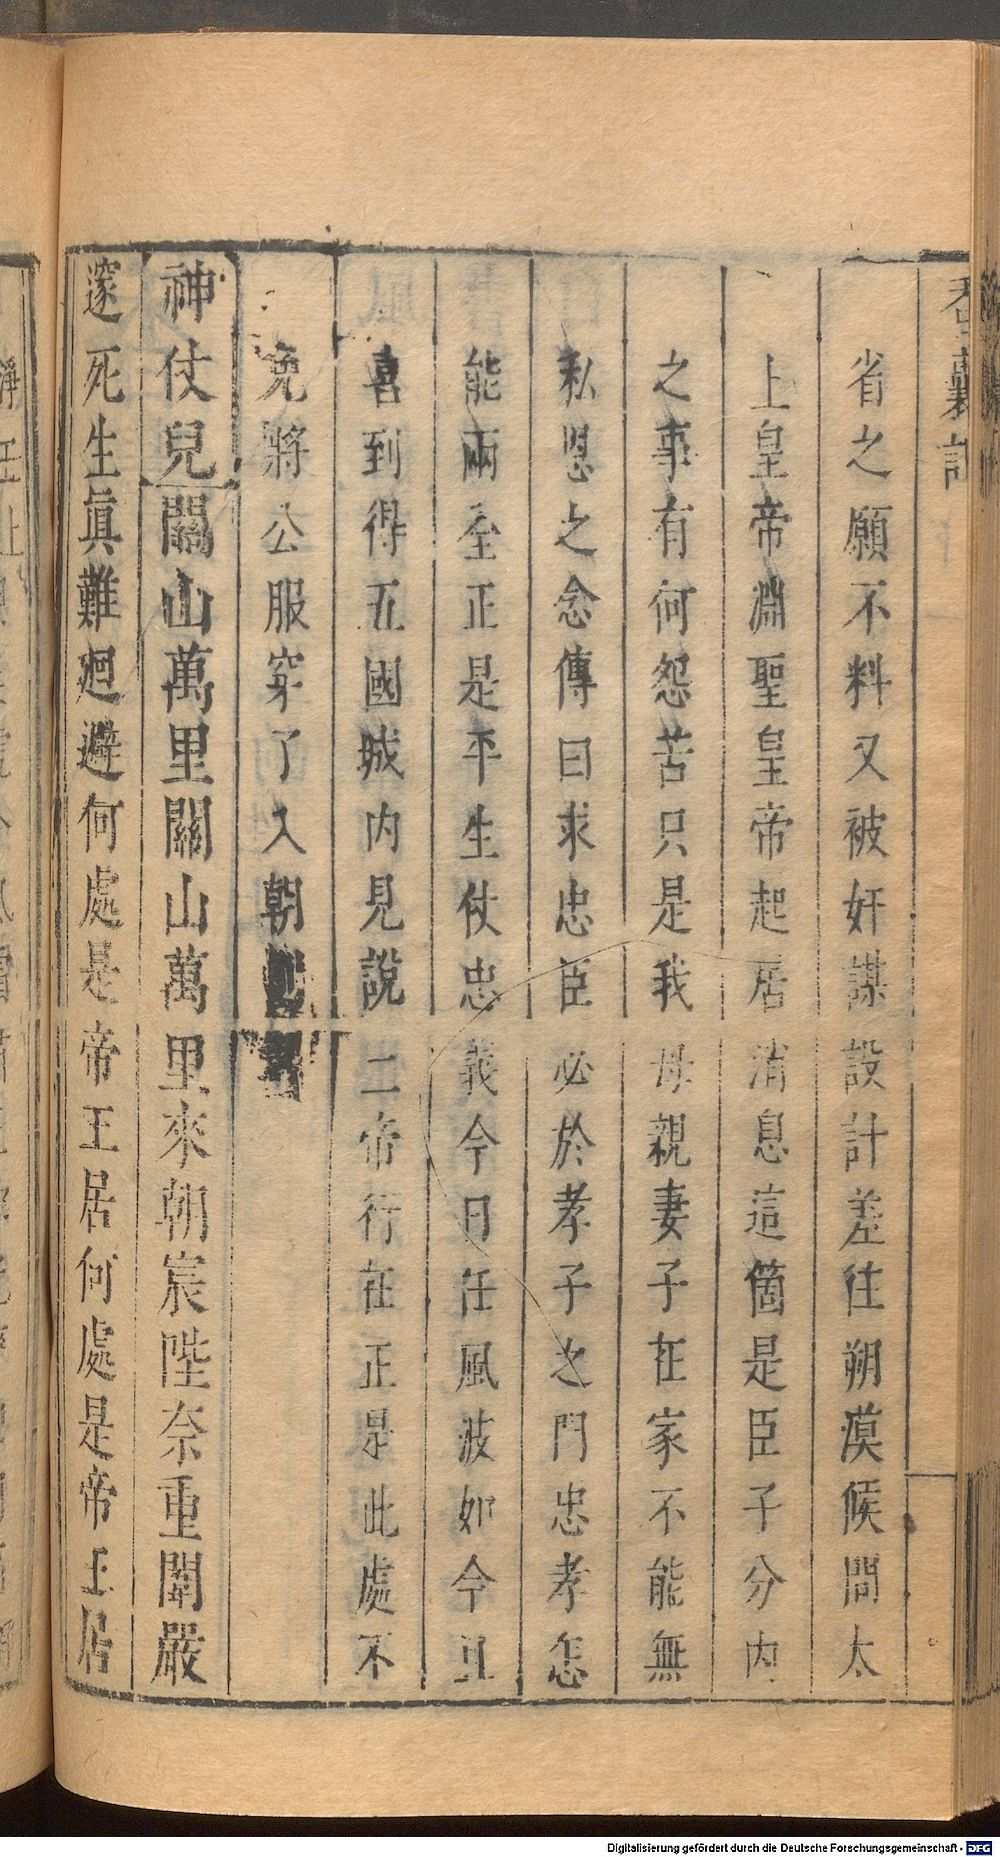 香囊記
省之願不料又被奸謀設計差往朔漠候問太
上皇帝淵聖皇帝起居消息這箇是臣子分內
之事有何怨苦只是我母親妻子在家不能無
私恩之念傳曰求忠臣必於孝子之門忠孝怎
能兩全正是平生仗忠義今日任風波如今且
喜到得五國城內見說二帝行在正是此處不
免將公服穿了入朝
神仗兒關山萬里關山萬里來朝宸陛奈重闈嚴
邃死生眞難廻避何處是帝王居何處是帝王居
Digitalisierung gefördert durch die Deutsche Forschungsgemeinschaft - DFG